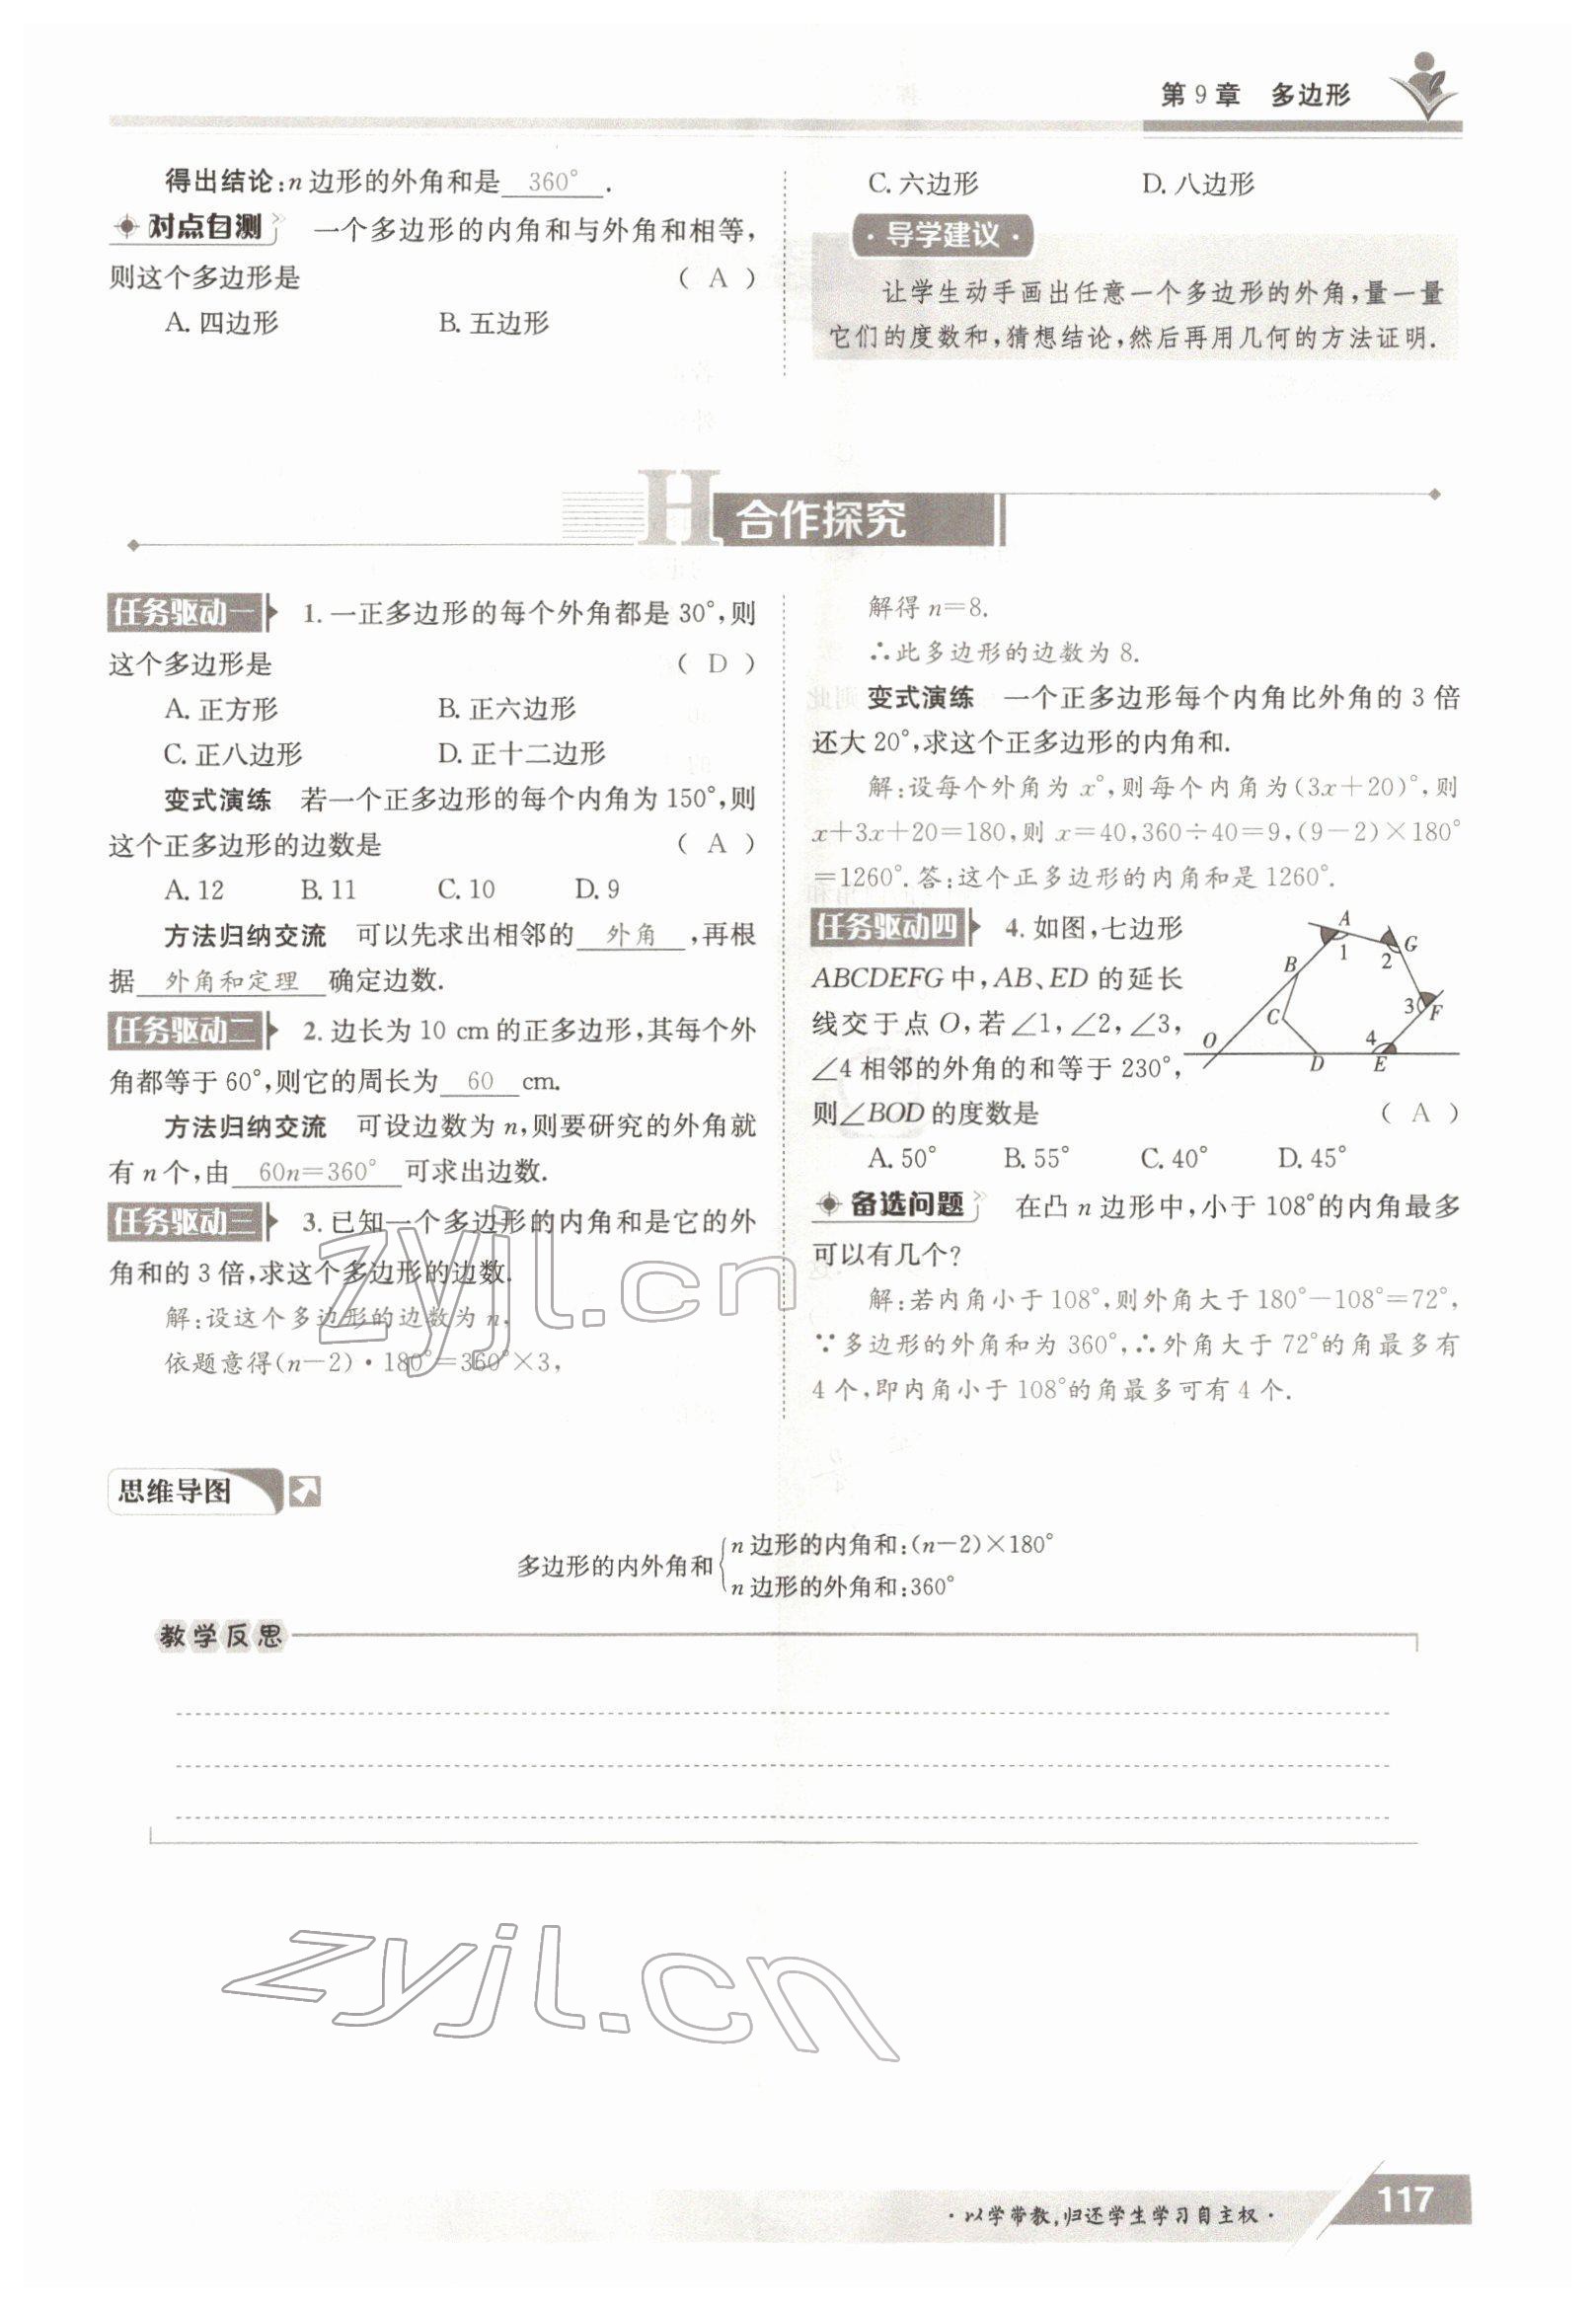 第9章 多边形
得出结论:n边形的外角和是 360° .
对点自测 一个多边形的内角和与外角和相等,
则这个多边形是 ( A )
A. 四边形 B. 五边形
C. 六边形 D. 八边形
·导学建议·
让学生动手画出任意一个多边形的外角,量一量
它们的度数和,猜想结论,然后再用几何的方法证明.
H 合作探究
任务驱动一 1. 一正多边形的每个外角都是30°,则
这个多边形是 ( D )
A. 正方形 B. 正六边形
C. 正八边形 D. 正十二边形
变式演练 若一个正多边形的每个内角为150°,则
这个正多边形的边数是 ( A )
A. 12 B. 11 C. 10 D. 9
方法归纳交流 可以先求出相邻的 外角 ,再根
据 外角和定理 确定边数.
任务驱动二 2. 边长为10 cm的正多边形,其每个外
角都等于60°,则它的周长为 60 cm.
方法归纳交流 可设边数为n,则要研究的外角就
有n个,由 60n=360° 可求出边数.
任务驱动三 3. 已知一个多边形的内角和是它的外
角和的3倍,求这个多边形的边数.
解:设这个多边形的边数为n,
依题意得(n-2)·180°=360°×3,
解得n=8.
∴此多边形的边数为8.
变式演练 一个正多边形每个内角比外角的3倍
还大20°,求这个正多边形的内角和.
解:设每个外角为x°,则每个内角为(3x+20)°,则
x+3x+20=180,则x=40,360÷40=9,(9-2)×180°
=1260°.答:这个正多边形的内角和是1260°.
任务驱动四 4. 如图,七边形
ABCDEFG中,AB、ED的延长
线交于点O,若∠1,∠2,∠3,
∠4相邻的外角的和等于230°,
则∠BOD的度数是 ( A )
A
1
G
2
B
3
F
C
4
O
D
E
A. 50° B. 55° C. 40° D. 45°
备选问题 在凸n边形中,小于108°的内角最多
可以有几个?
解:若内角小于108°,则外角大于180°-108°=72°,
∵多边形的外角和为360°,∴外角大于72°的角最多有
4个,即内角小于108°的角最多可有4个.
zyjl.cn
思维导图
多边形的内外角和
n边形的内角和:(n-2)×180°
n边形的外角和:360°
教学反思
zyjl.cn
·以学带教,归还学生学习自主权·
117